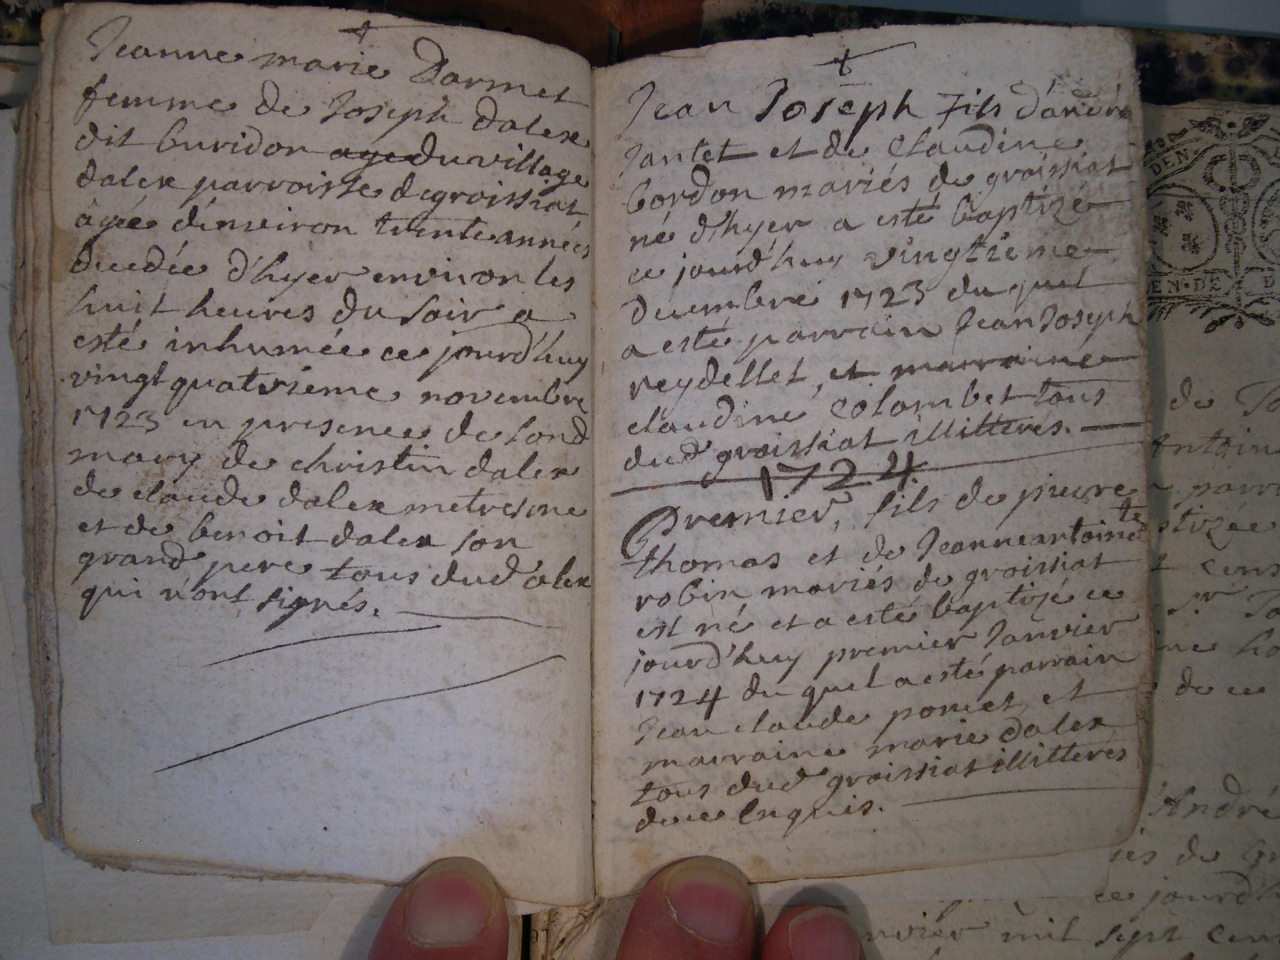 Jeanne marie Darmet
femme de Joseph dalex
dit buridon age du village
dalex parroisse de groissiat
âgée d'enveiron trente années
decedée d'hyer environ les
huit heures du soir a
esté inhumée ce jourd'huy
vingt quatrieme novembre
1723 en presence de sond
mary de christin dalex
de claude dalex metresme
et de benoit dalex son
grand pere tous dud alex
qui n'ont signés.
Jean Joseph fils d'andré
Jantet et de Claudine
bordon mariés de groissiat
né d'hyer a esté baptizé
ce jourd'huy vingtieme
decembre 1723 du quel
a esté parrain Jean Joseph
reydellet, et marraine
claudine Colombet tous
dud groissiat illitterés.
1724
Premier, fils de pierre
thomas et de Jeanne antoinette
robin mariés de groissiat
est né et a esté baptizé ce
jourd'huy premier Janvier
1724 du quel a esté parrain
Jean claude poncet, et
marraine marie dalex
tous dud groissiat illitterés
de ce enquis.
DEN
EN·DE
de
Antoine
parr
ptizée
de ce
André
iés de
ce jourd'h
nvier mil sept cen